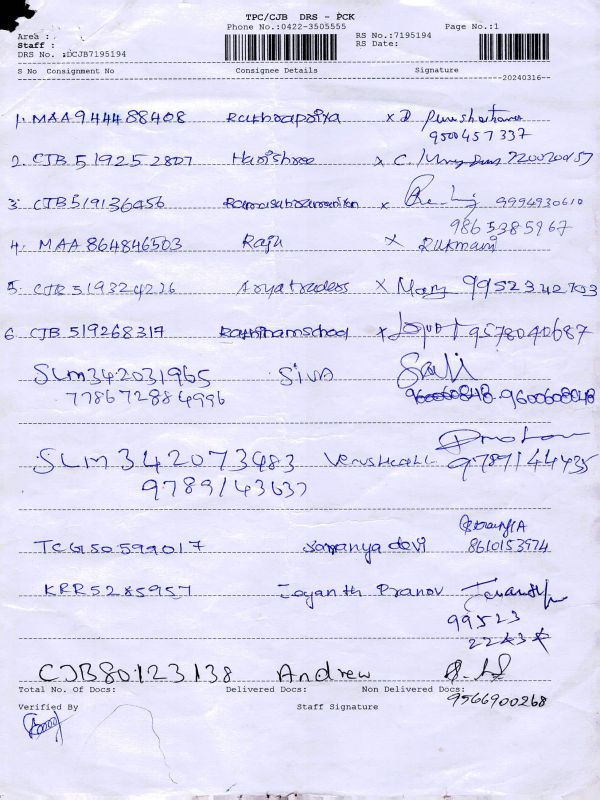 TPC/CJB DRS - PCK
Phone No.:0422-3505555 Page No.:1
Area : RS No.:7195194
Staff : RS Date:
DRS No. :DCJB7195194
S No Consignment No Consignee Details Signature
20240316--
1. MAA944488408 Ruthrapriya x D
9500457337
2. CJB 519252807 Harishree x C.
3. CJB519136456 Ramasubramanian x 9994930610
9865385967
4. MAA 864846503 Raju x Rukmani
5. CJB 519324226 Aryatraders x Mary 9952342703
6. CJB 519268317 x 9578040687
SLM342031965 SIVA
778672884996 9600608048
SLM342073483 9789144435
9789143637
TCG150599017 Sowmya devi 8610153974
KRR5285957 Jayanth Pranov
99523
CJB80123138 Andrew
Total No. Of Docs: Delivered Docs: Non Delivered Docs:
9566900268
Verified By Staff Signature